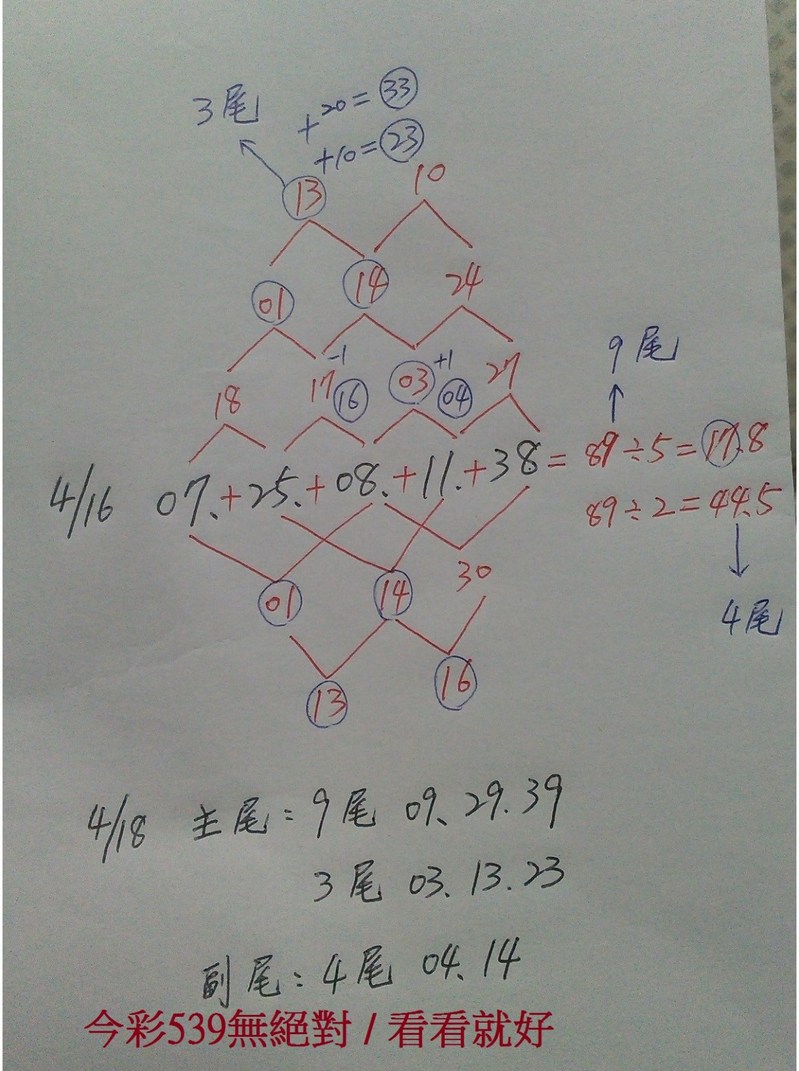 3尾 +20=33
+10=23
13 10
01 14 24
9尾
18 17 -1 16 03 +1 04 27
4/16 07.+25.+08.+11.+38=89÷5=17.8
89÷2=44.5
01 14 30
4尾
13 16
4/18 主尾:9尾 09、29.39
3尾 03、13.23
副尾:4尾 04、14
今彩539無絕對 / 看看就好